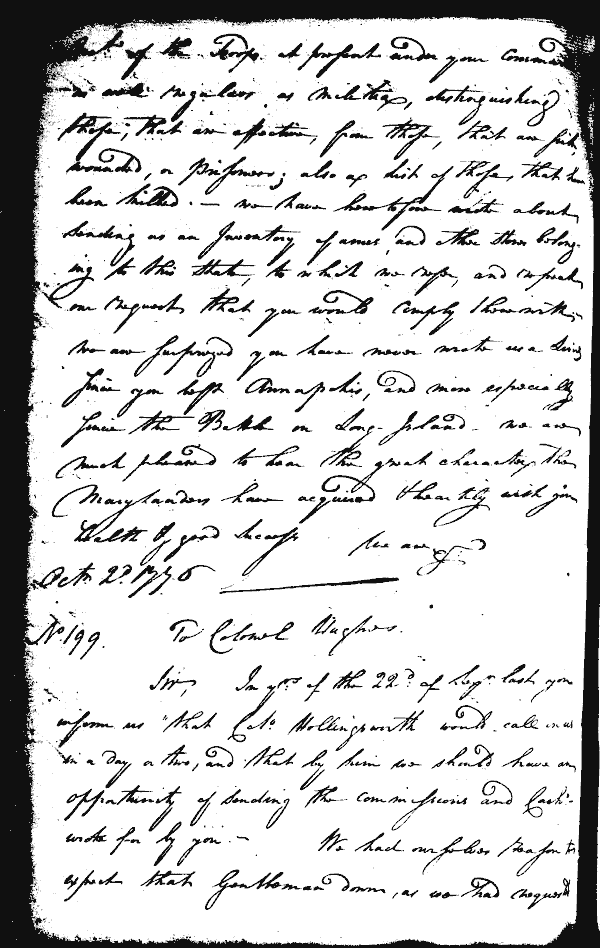 of the Troops at present under your Command
as well regulars as militia, distinguishing
those, that are effective, from those, that are sick,
wounded, or Prisoners; also a list of those, that have
been killed. — we have heretofore wrote about
sending us an Inventory of arms and other stores belong-
ing to this State, to which we refer, and repeat
our request that you would comply therewith,
we are surprized you have never wrote us a Line
since you left Annapolis, and more especially
since the Battle on Long Island. we are
much pleased to hear the great character the
Marylanders have acquired & heartily wish you
health & good success We are &c
Octr. 2d. 1776
No. 199. To Colonel Hughes.
Sir, In yrs. of the 22d. of Sepr. last you
inform us "that Colo. Hollingsworth would call on us
in a day or two, and that by him we should have an
opportunity of sending the commissions and Cash
wrote for by you. — We had ourselves reason to
expect that Gentleman down, as we had request